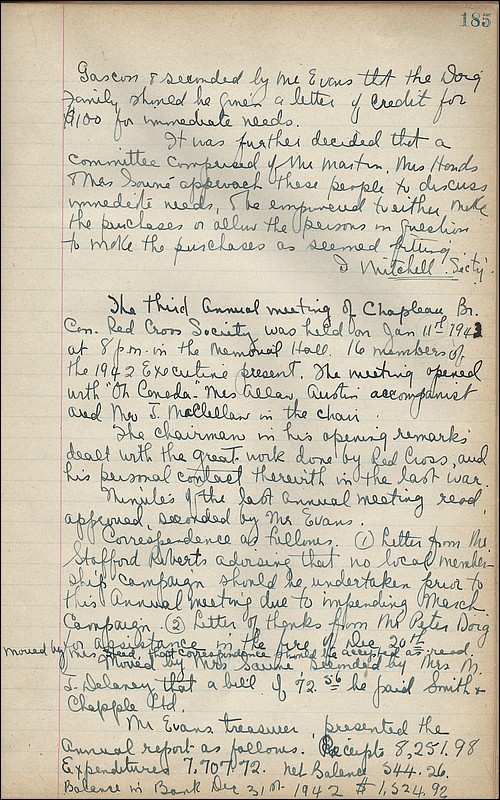 185
Gascon & seconded by Mr Evans tht the Doig
Family should be given a letter of credit for
$100 for immediate needs.
It was further decided that a
committee composed of Mr Martin, Mrs Honds
& Mrs Sauné approach these people to discuss
immediate needs, & be empowered to either make
the purchases or allow the persons in question
to make the purchases as seemed fitting
I Mitchell Sec'ty
The third Annual meeting of Chapleau Br.
Can. Red Cross Society was held on Jan 11th 1943
at 8 p.m. in the Memorial Hall. 16 members of
the 1942 Executive present. The meeting opened
with "Oh Canada" Mrs Allan Austin accompanist
and Mr J. McClellan in the chair
The chairman in his opening remarks
dealt with the great work done by Red Cross, and
his personal contact therewith in the last war.
Minutes of the last annual meeting read,
approved, seconded by Mr Evans.
Correspondence as follows. (1) Letter from Mr.
Stafford Roberts advising that no local member-
ship campaign should be undertaken prior to
this Annual meeting due to impending March
Campaign. (2) Letter of thanks from Mr Peter Doig
for assistance in the fire of Dec 20th
moved by Mrs that correspondence should be accepted as read.
Moved by Mrs Sauné seconded by Mrs M.
J. Delaney that a bill of 72.56 be paid Smith &
Chapple Ltd.
Mr Evans, treasurer, presented the
Annual report as follows. Receipts 8,251.98
Expenditures 7,707.72. Net Balance 544.26.
Balance in Bank Dec 31st 1942 $1,524.92